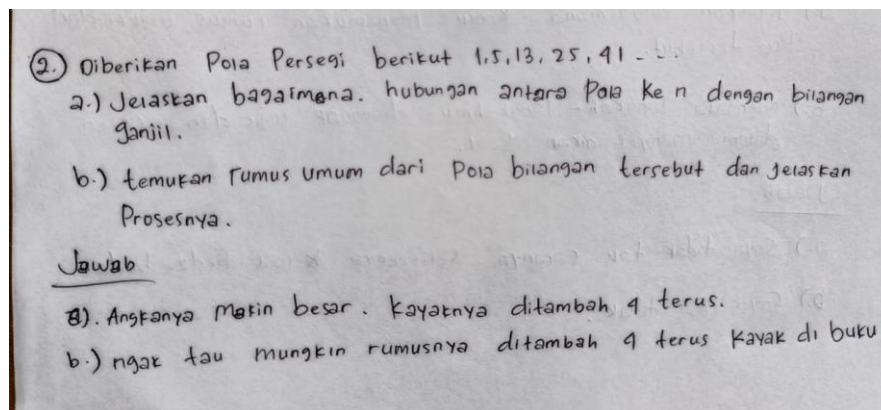 2.) Diberikan Pola Persegi berikut 1,5,13,25,41 - - - .
a.) Jelaskan bagaimana. hubungan antara Pola Ke n dengan bilangan
ganjil.
b.) temukan rumus umum dari Pola bilangan tersebut dan Jelaskan
Prosesnya.
Jawab
a). Angkanya Makin besar. Kayaknya ditambah 4 terus.
b.) ngak tau mungkin rumusnya ditambah 4 terus Kayak di buku